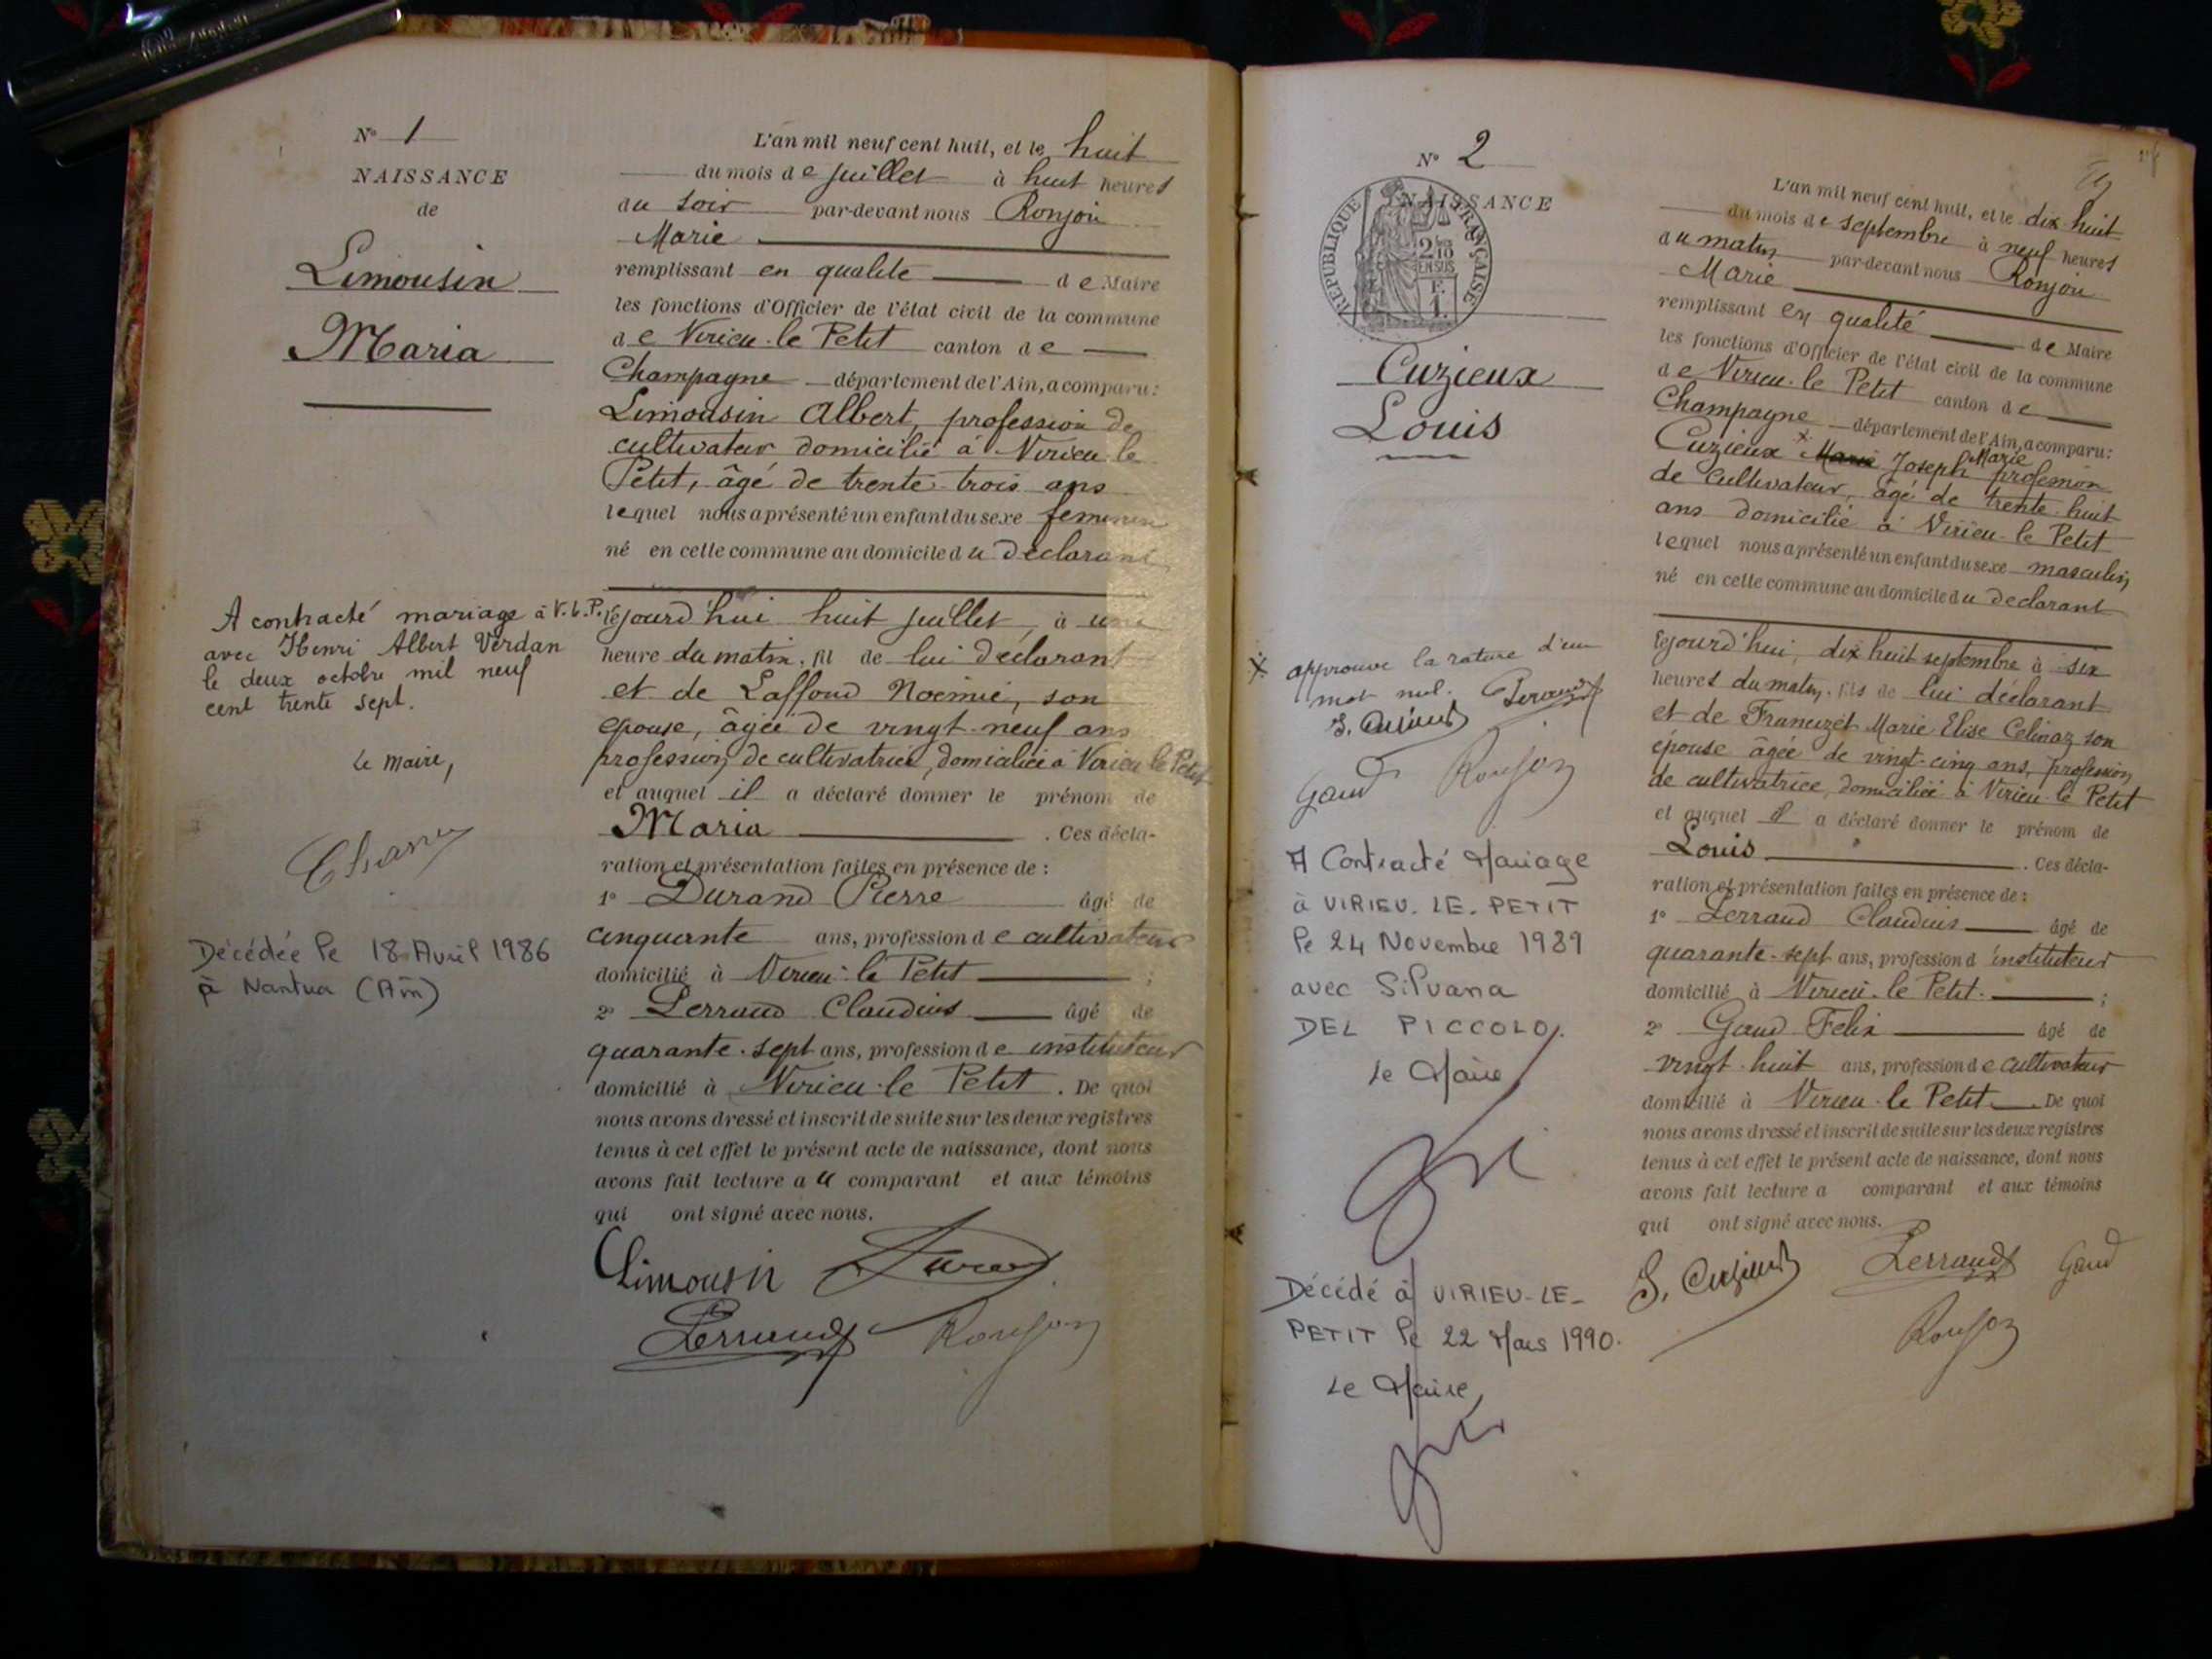 N° 1
NAISSANCE
de
Limousin
Maria
A contracté mariage à V.L.P.
avec Henri Albert Verdan
le deux octobre mil neuf
cent trente sept.
Le Maire,
Décédée le 18 Avril 1986
à Nantua (Ain)
L'an mil neuf cent huit, et le huit
du mois de juillet à huit heures
du soir par-devant nous Ronjon
Marie
remplissant en qualité de Maire
les fonctions d'Officier de l'état civil de la commune
de Virieu-le Petit canton de
Champagne département de l'Ain, a comparu:
Limousin Albert, profession de
cultivateur domicilié à Virieu le
Petit, âgé de trente-trois ans
lequel nous a présenté un enfant du sexe feminin
né en cette commune au domicile du déclarant
cejourd'hui huit juillet, à une
heure du matin, fil de lui déclarant
et de Laffond Noémie, son
épouse, âgée de vingt-neuf ans
profession de cultivatrice, domiciliée à Virieu le Petit
et auquel il a déclaré donner le prénom de
Maria . Ces décla-
ration et présentation faites en présence de :
1° Durand Pierre âgé de
cinquante ans, profession de cultivateur
domicilié à Virieu-le Petit ;
2° Perraud Claudius âgé de
quarante-sept ans, profession de instituteur
domicilié à Virieu-le Petit . De quoi
nous avons dressé et inscrit de suite sur les deux registres
tenus à cet effet le présent acte de naissance, dont nous
avons fait lecture au comparant et aux témoins
qui ont signé avec nous.
Limousin Durand
Perraud Ronjon
N° 2
NAISSANCE
RÉPUBLIQUE FRANÇAISE
2/10 EN SUS
F.
1.
Cuzieux
Louis
x approuvé la rature d'un
mot nul. Perraud
J. Cuzieux
Gaud Ronjon
A Contracté Mariage
à VIRIEU-LE-PETIT
le 24 Novembre 1989
avec Silvana
DEL PICCOLO.
Le Maire
Décédé à VIRIEU-LE-
PETIT le 22 Mars 1990.
Le Maire,
L'an mil neuf cent huit, et le dix-huit
du mois de septembre à neuf heures
du matin par-devant nous Ronjon
Marie
remplissant en qualité de Maire
les fonctions d'Officier de l'état civil de la commune
de Virieu-le Petit canton de
Champagne département de l'Ain, a comparu:
Cuzieux x Marie Joseph Marie profession
de cultivateur, âgé de trente-huit
ans domicilié à Virieu-le Petit
lequel nous a présenté un enfant du sexe masculin
né en cette commune au domicile du déclarant
cejourd'hui, dix huit septembre à six
heures du matin, fils de lui déclarant
et de Francuzet Marie Elise Celinaz son
épouse âgée de vingt-cinq ans, profession
de cultivatrice, domiciliée à Virieu-le Petit
et auquel il a déclaré donner le prénom de
Louis . Ces décla-
ration et présentation faites en présence de :
1° Perraud Claudius âgé de
quarante-sept ans, profession d instituteur
domicilié à Virieu-le Petit. ;
2° Gaud Felix âgé de
vingt-huit ans, profession de cultivateur
domicilié à Virieu-le Petit De quoi
nous avons dressé et inscrit de suite sur les deux registres
tenus à cet effet le présent acte de naissance, dont nous
avons fait lecture a comparant et aux témoins
qui ont signé avec nous.
J. Cuzieux Perraud Gaud
Ronjon